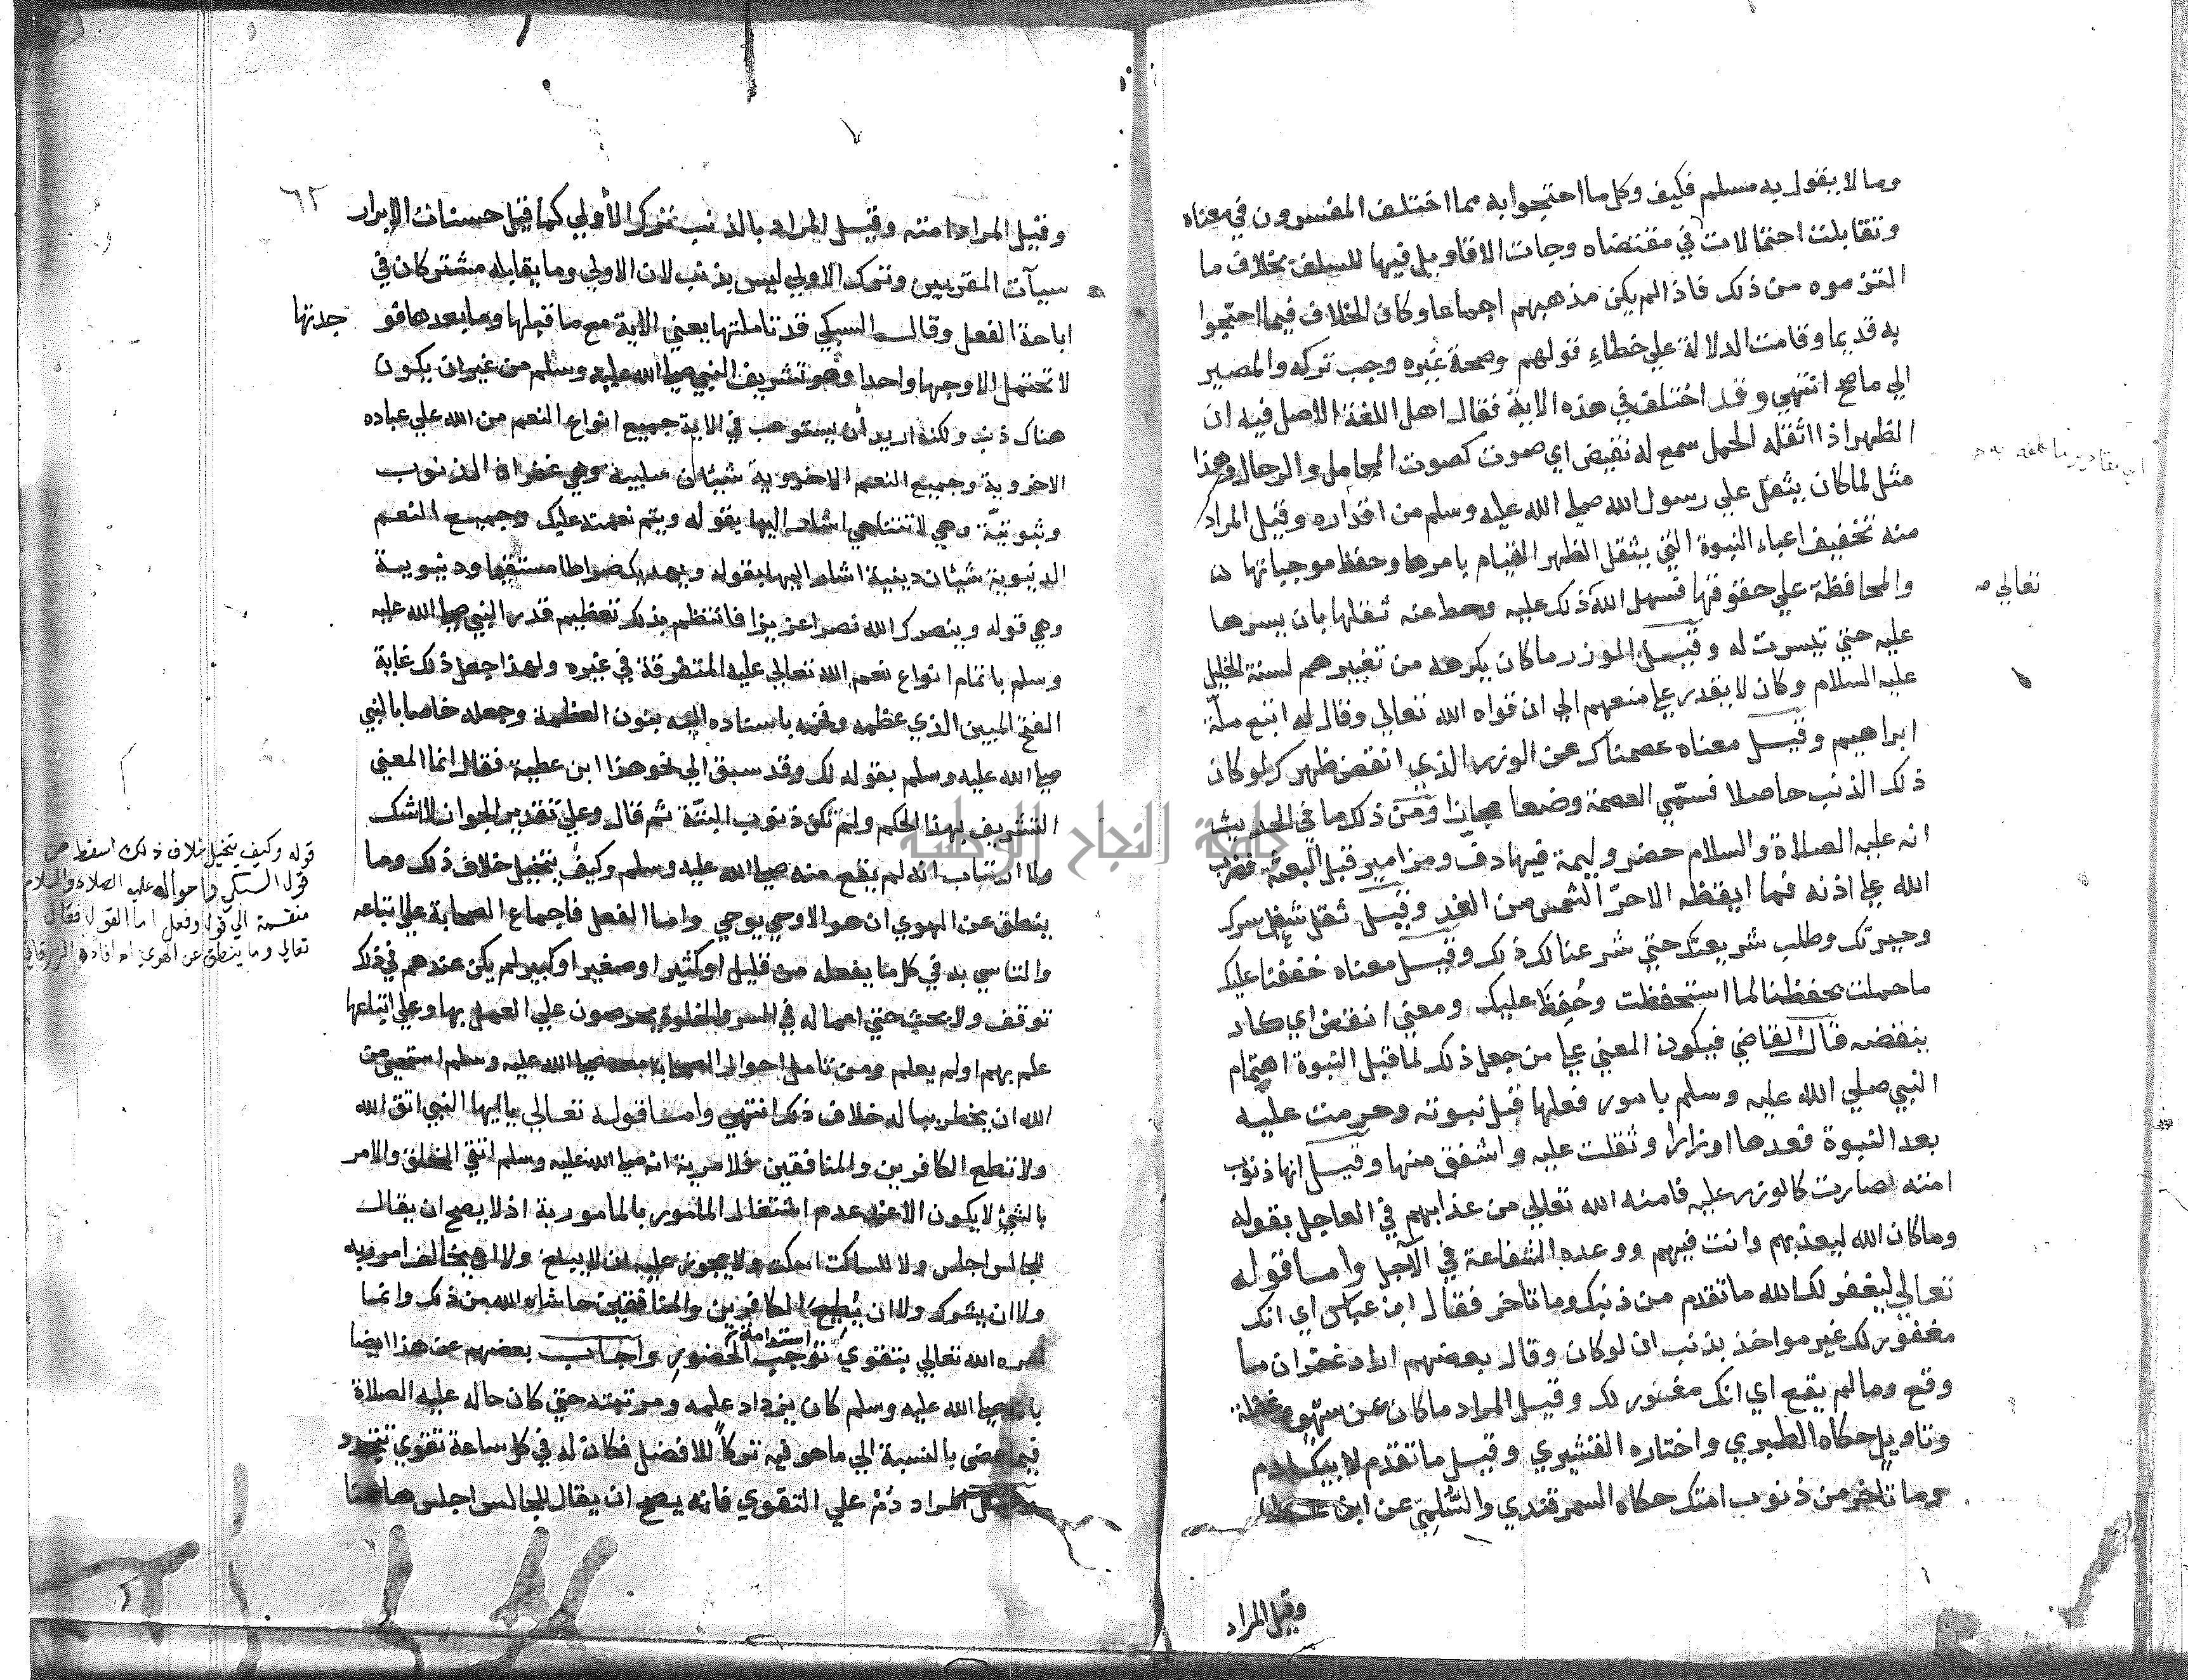 وما لا يقول به مسلم فكيف وكل ما احتجوا به مما اختلف المفسرون في معناه
وتقابلت احتمالات في مقتضاه وجات الاقاويل فيها للسلف بخلاف ما
التزموه من ذلك فاذا لم يكن مذهبهم اجماعا وكان الخلاف فيما احتجوا
به قديما وقامت الدلالة علي خطاء قولهم وصحة غيره وجب تركه والمصير
الي ما صح انتهي وقد اختلف في هذه الاية فقال اهل اللغة الاصل فيه ان
الظهر اذا اثقله الحمل سمع له نقيض اي صوت كصوت المحامل والرحال وهذا
مثل لما كان يثقل علي رسول الله صلي الله عليه وسلم من اقداره وقيل المراد
منه تخفيف اعباء النبوة التي يثقل الظهر القيام بامرها وحفظ موجباتها
والمحافظة علي حقوقها فسهل الله ذلك عليه وحط عنه ثقلها بان يسرها
تعالي
عليه حتي تيسرت له وقيل الوزر ما كان يكرهه من تغييرهم لسنة الخليل
عليه السلام وكان لا يقدر علي منعهم الي ان قواه الله تعالي وقال له اتبع ملة
ابراهيم وقيل معناه عصمناك عن الوزر الذي انقض ظهرك لو كان
ذلك الذنب حاصلا فسمي العصمة وضعا مجازا ومن ذلك ما في الحديث
انه عليه الصلاة والسلام حضر وليمة فيها دف ومزامير قبل البعثة فضرب
الله علي اذنه فما ايقظه الا حر الشمس من الغد وقيل ثقل شغل سرك
وحيرتك وطلب شريعتك حتي شرعنا لك ذلك وقيل معناه خففنا عليك
ما حملت بحفظنا لما استحفظت وحُفِظَ عليك ومعني انقض اي كاد
ينقضه قال القاضي فيكون المعني علي من جعل ذلك لما قبل النبوة اهتمام
النبي صلي الله عليه وسلم بامور فعلها قبل نبوته وحرمت عليه
بعد النبوة فعدها اوزارا وثقلت عليه واشفق منها وقيل انها ذنوب
امته صارت كالوزر عليه فامنه الله تعالي من عذابهم في العاجل بقوله
وما كان الله ليعذبهم وانت فيهم ووعده الشفاعة في الآجل واما قوله
تعالي ليغفر لك الله ما تقدم من ذنبك وما تاخر فقال ابن عباس اي انك
مغفور لك غير مواخذ بذنب ان لو كان وقال بعضهم اراد غفران ما
وقع وما لم يقع اي انك مغفور لك وقيل المراد ما كان عن سهو وغفلة
وتاويل حكاه الطبري واختاره القشيري وقيل ما تقدم لابيك ادم
وما تاخر من ذنوب امتك حكاه السمرقندي والسُّلمي عن ابن عطا
وقيل المراد
٦٢
وقيل المراد امته وقيل المراد بالذنب ترك الأولي كما قيل حسنات الابرار
سيآت المقربين وترك الاولي ليس بذنب لان الاولي وما يقابله مشتركان في
اباحة الفعل وقال السبكي قد تاملتها يعني الاية مع ما قبلها وما بعدها فو
جدتها
لا تحتمل الا وجها واحدا وهو تشريف النبي صلي الله عليه وسلم من غير ان يكون
هناك ذنب ولكنه اريد أن يستوعب في الاية جميع انواع النعم من الله علي عباده
الاخروية وجميع النعم الاخروية شيئان سلبية وهي غفران الذنوب
وثبوتيّة وهي لا تتناهي اشار اليها بقوله ويتم نعمته عليك وجميع النعم
الدنيوية شيئان دينية اشار اليها بقوله ويهديك صراطا مستقيما ودنيوية
وهي قوله وينصرك الله نصرا عزيزا فانتظم بذلك تعظيم قدر النبي صلي الله عليه
وسلم باتمام انواع نعم الله تعالي عليه المتفرقة في غيره ولهذا جعل ذلك غاية
الفتح المبين الذي عظمه وفخمه باسناده اليه بنون العظمة وجعله خاصا بالنبي
صلي الله عليه وسلم بقوله لك وقد سبق الي نحو هذا ابن عطية فقال انما المعني
التشريف بهذا الحكم ولم تكن ذنوب البتّة ثم قال وعلي تقدير الجواز لا اشك
ولا ارتياب انه لم يقع منه صلي الله عليه وسلم وكيف يتخيل خلاف ذلك وما
ينطق عن الهوي ان هو الا وحي يوحي واما الفعل فاجماع الصحابة علي اتباعه
والتاسي به في كل ما يفعله من قليل او كثير او صغير او كبير لم يكن عندهم في ذلك
توقف ولا بحث حتي اعماله في السر والخلوة يحرصون علي العمل بها وعلي اتباعها
علم بهم او لم يعلم ومن تامل احوال الصحابة معه صلي الله عليه وسلم استحيي من
الله ان يخطر بباله خلاف ذلك انتهي واما قوله تعالي يا ايها النبي اتق الله
ولا تطع الكافرين والمنافقين فلا مرية انه صلي الله عليه وسلم اتقي الخلق والامر
بالشيء لا يكون الا عند عدم اشتغال المامور بالمامور به اذ لا يصح ان يقال
للجالس اجلس ولا للساكت اسكت ولا يجوز عليه ان لا يبلغ ولا ان يخالف امر ربه
ولا ان يشرك ولا ان يُطِيعَ الكافرين والمنافقين حاشاه الله من ذلك وانما
أمره الله تعالي بتقوي توجب استدامة الحضور واجاب بعضهم عن هذا ايضا
بانه صلي الله عليه وسلم كان يزداد علمه ومرتبته حتي كان حاله عليه الصلاة
فيما مضي بالنسبة الي ما هو فيه تركاً للافضل فكان له في كل ساعة تقوي تتجدد
وقيل المراد دُمْ علي التقوي فانه يصح ان يقال للجالس اجلس هاهنا
قوله وكيف يتخيل خلاف ذلك اسقط من
قول السبكي واحواله عليه الصلاة والسلام
منقسمة الي قول وفعل اما القول فقال
تعالي وما ينطق عن الهوي اه افاده الزرقاني
جامعة النجاح الوطنية